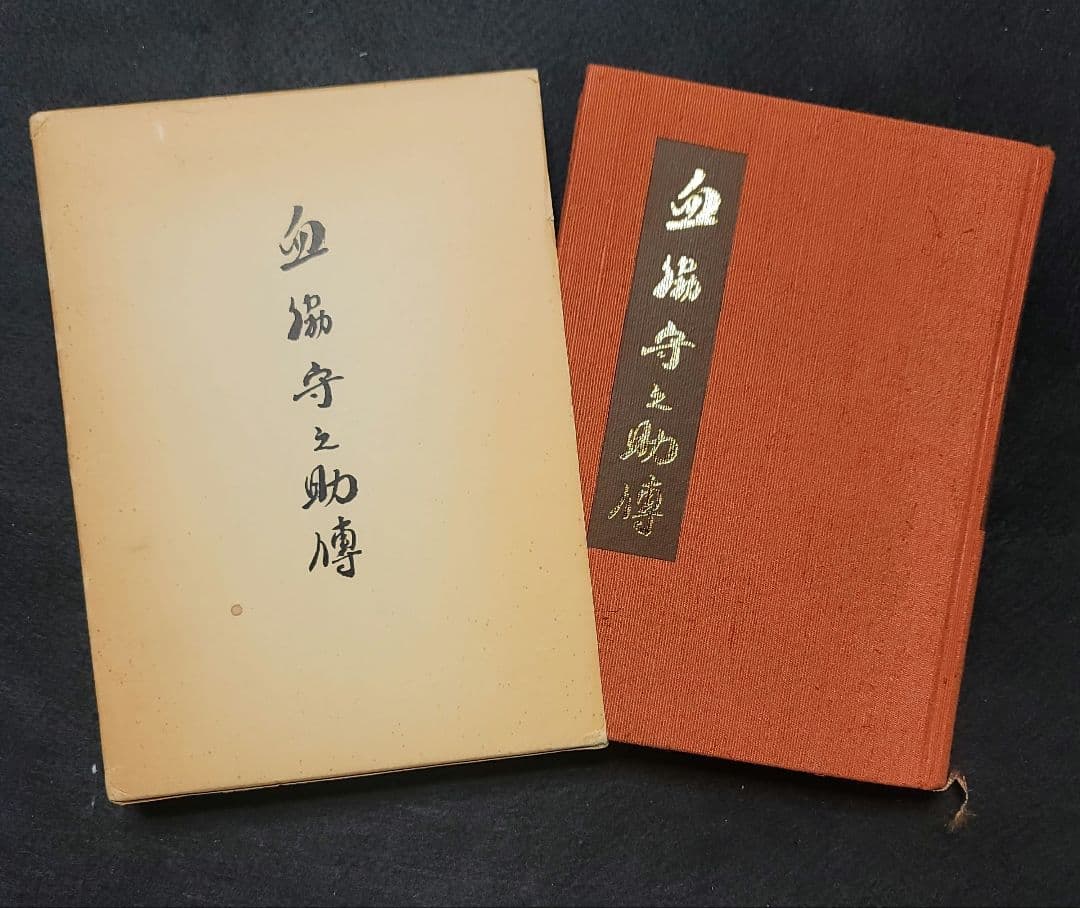 血脇守之助傳
血脇守之助傳